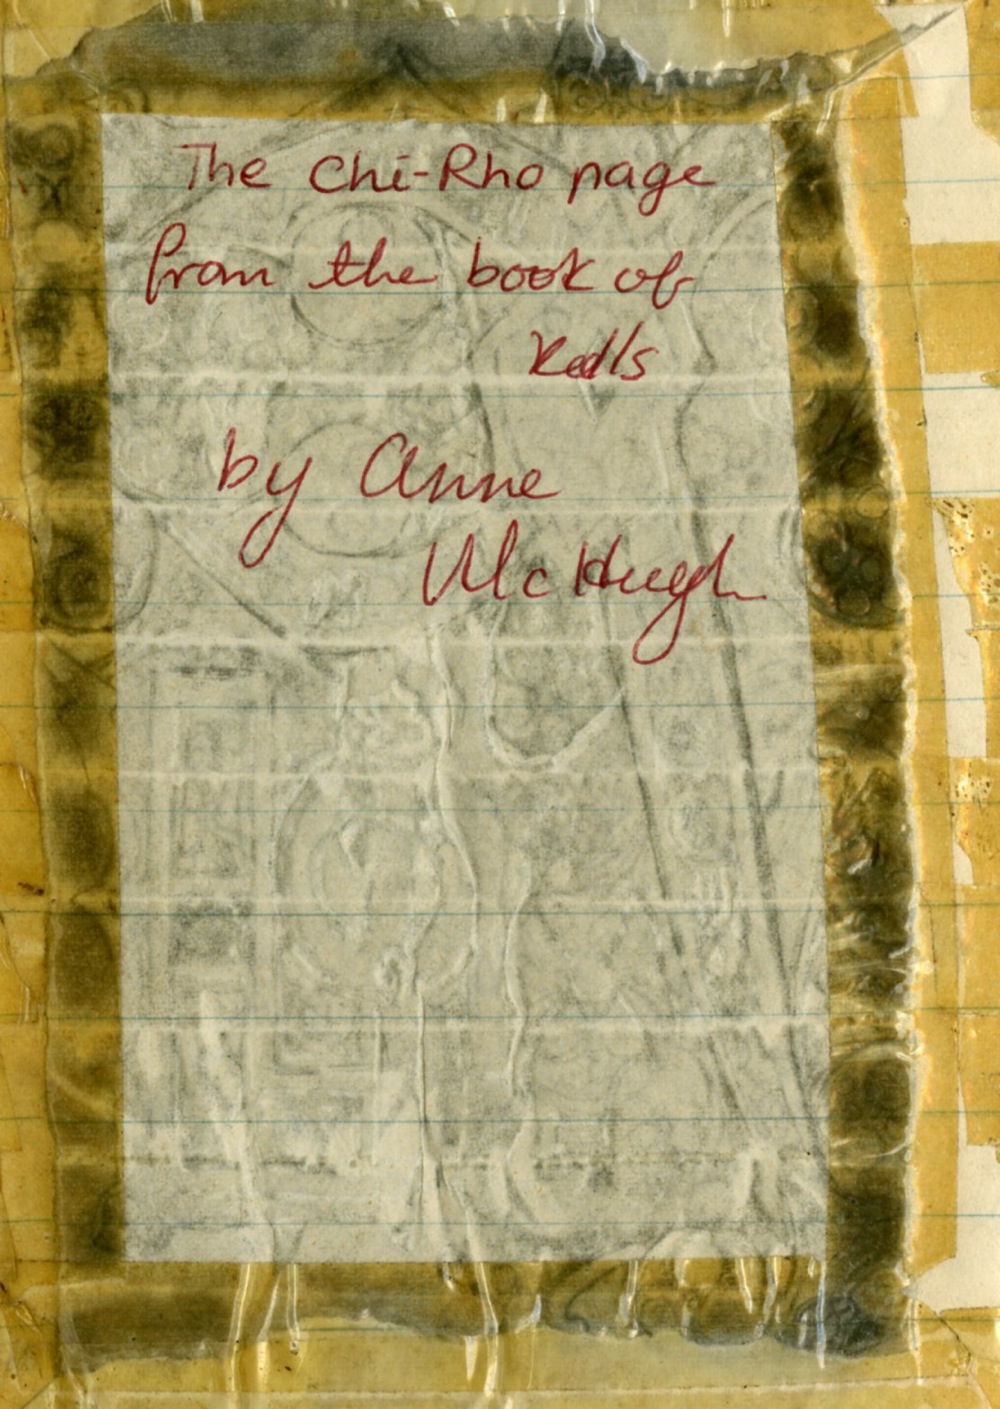 The Chi-Rho page
from the book of
Kells
by Anne
McHugh